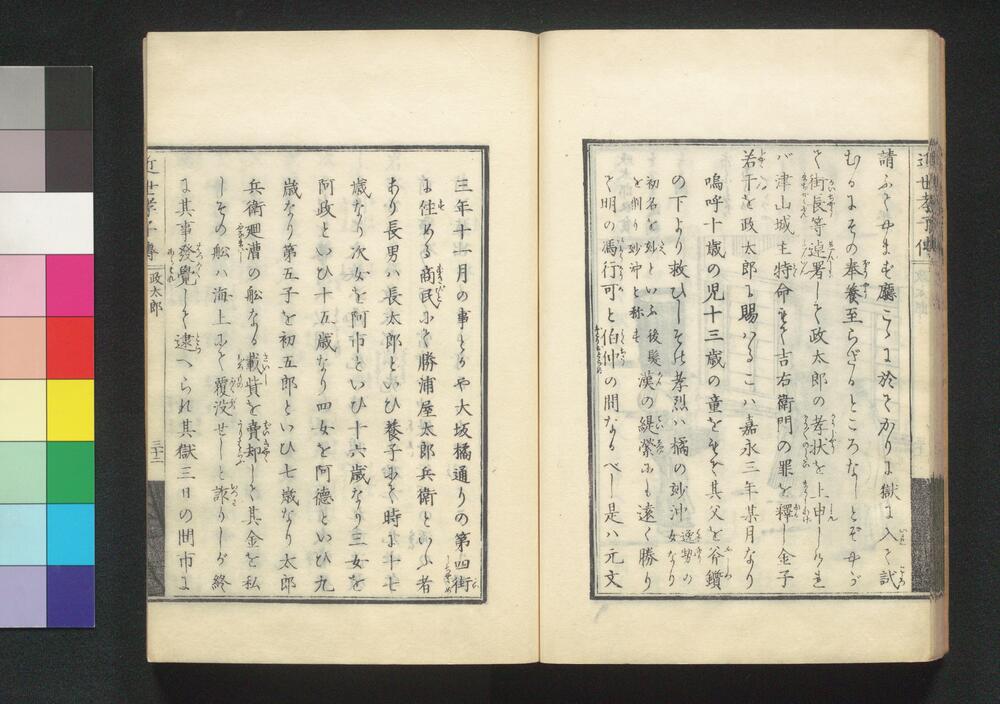 請ふてやまず廳こゝに於てかりに獄に入て試
むるにその奉養至らざるところなしとぞやが
て街長等連署して政太郎の孝状を上申しければ
バ津山城主特命もて吉右衛門の罪を釋し金子
若干を政太郎に賜ハるこハ嘉永三年某月なり
嗚呼十歳の児十三歳の童をもて其父を斧鑕
の下より救ひしその孝烈ハ橘の妙沖
初名を妙といふ後髪
を削り妙冲と称す
漢の緹縈にも遠く勝り
て明の馮行可と伯仲の間なるべし是ハ元文
近世孝子傳
三年十一月の事とかや大坂橘通りの第四街
に住める商民にて勝浦屋太郎兵衛といふ者
あり長男ハ長太郎といひ養子にて時に十七
歳なり次女を阿市といひ十六歳なり三女を
阿政といひ十五歳なり四女を阿徳といひ九
歳なり第五子を初五郎といひ七歳なり太郎
兵衛廻漕の舩なる載貨を賣却して其金を私
しその舩ハ海上にて覆没せしと詐りしが終
に其事發覺して逮へられ其獄三日の間市に
近世孝子傳
政太郎
三十二